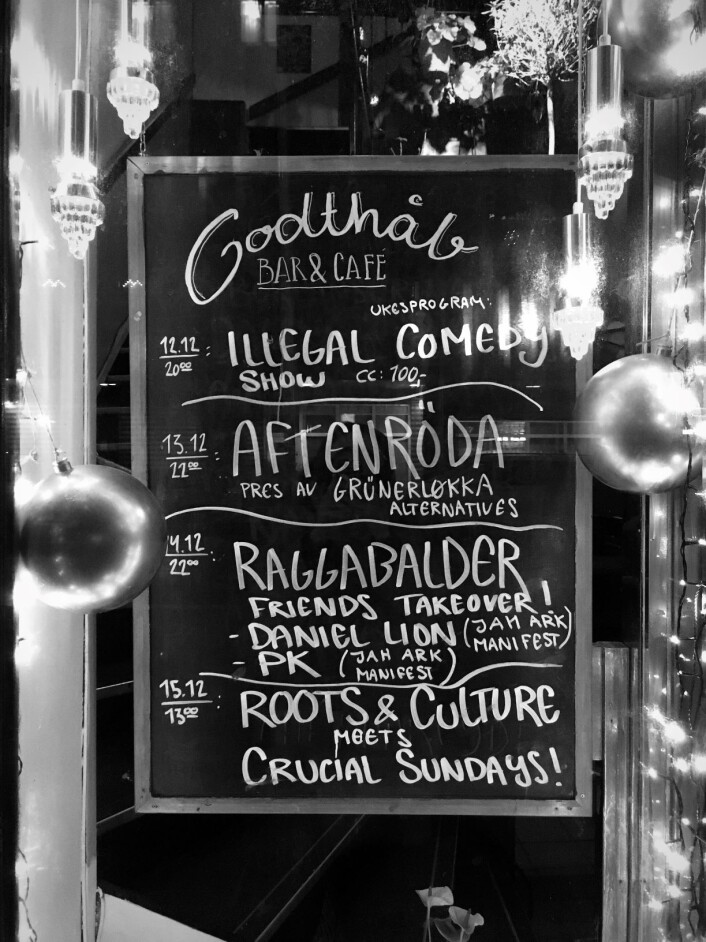 Godthåb
BAR & CAFÉ
UKESPROGRAM:
12.12 : ILLEGAL COMEDY
20⁰⁰ SHOW CC: 100,-
13.12 : AFTENRÖDA
22⁰⁰ PRES AV GRÜNERLØKKA
ALTERNATIVES
14.12 : RAGGABALDER
22⁰⁰ FRIENDS TAKEOVER!
- DANIEL LION (JAH ARK MANIFEST)
- PK (JAH ARK MANIFEST)
15.12 : ROOTS & CULTURE
13⁰⁰ MEETS
CRUCIAL SUNDAYS!